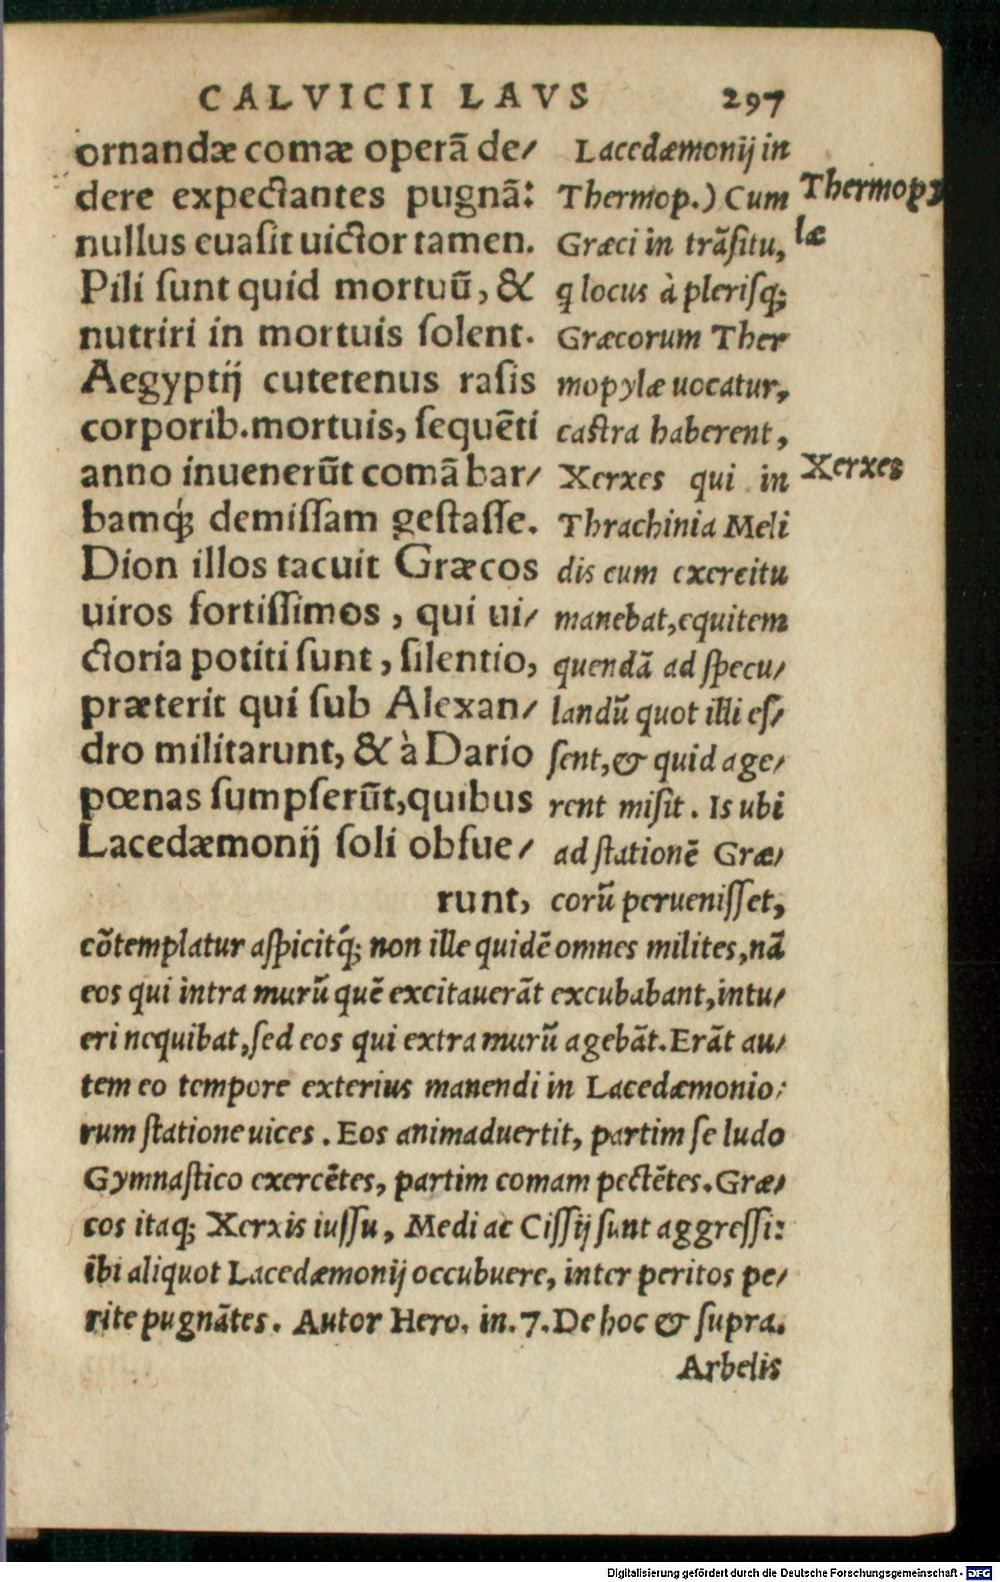 CALVICII LAVS 297
ornandæ comæ operā de/
dere expectantes pugnā:
nullus euasit uictor tamen.
Pili sunt quid mortuū, &
nutriri in mortuis solent.
Aegyptij cutetenus rasis
corporib. mortuis, sequēti
anno inuenerūt comā bar/
bamq; demissam gestasse.
Dion illos tacuit Græcos
uiros fortissimos, qui ui/
ctoria potiti sunt, silentio,
præterit qui sub Alexan/
dro militarunt, & à Dario
pœnas sumpserūt, quibus
Lacedæmonij soli obsue/
runt,
Lacedæmonij in
Thermop.) Cum
Græci in trāsitu,
q locus à plerisq;
Græcorum Ther
mopylæ uocatur,
castra haberent,
Xerxes qui in
Thrachinia Meli
dis cum exercitu
manebat, equitem
quendā ad specu/
landū quot illi es/
sent, & quid age/
rent misit. Is ubi
ad stationē Græ/
corū peruenisset,
Thermopy
læ
Xerxes
cōtemplatur aspicitq; non ille quidē omnes milites, nā
eos qui intra murū quē excitauerāt excubabant, intu/
eri nequibat, sed eos qui extra murū agebāt. Erāt au/
tem eo tempore exterius manendi in Lacedæmonio/
rum statione uices. Eos animaduertit, partim se ludo
Gymnastico exercētes, partim comam pectētes. Græ/
cos itaq; Xerxis iussu, Medi ac Cissij sunt aggressi:
ibi aliquot Lacedæmonij occubuere, inter peritos pe/
rite pugnātes. Autor Hero. in. 7. De hoc & supra.
Arbelis
Digitalisierung gefördert durch die Deutsche Forschungsgemeinschaft - DFG